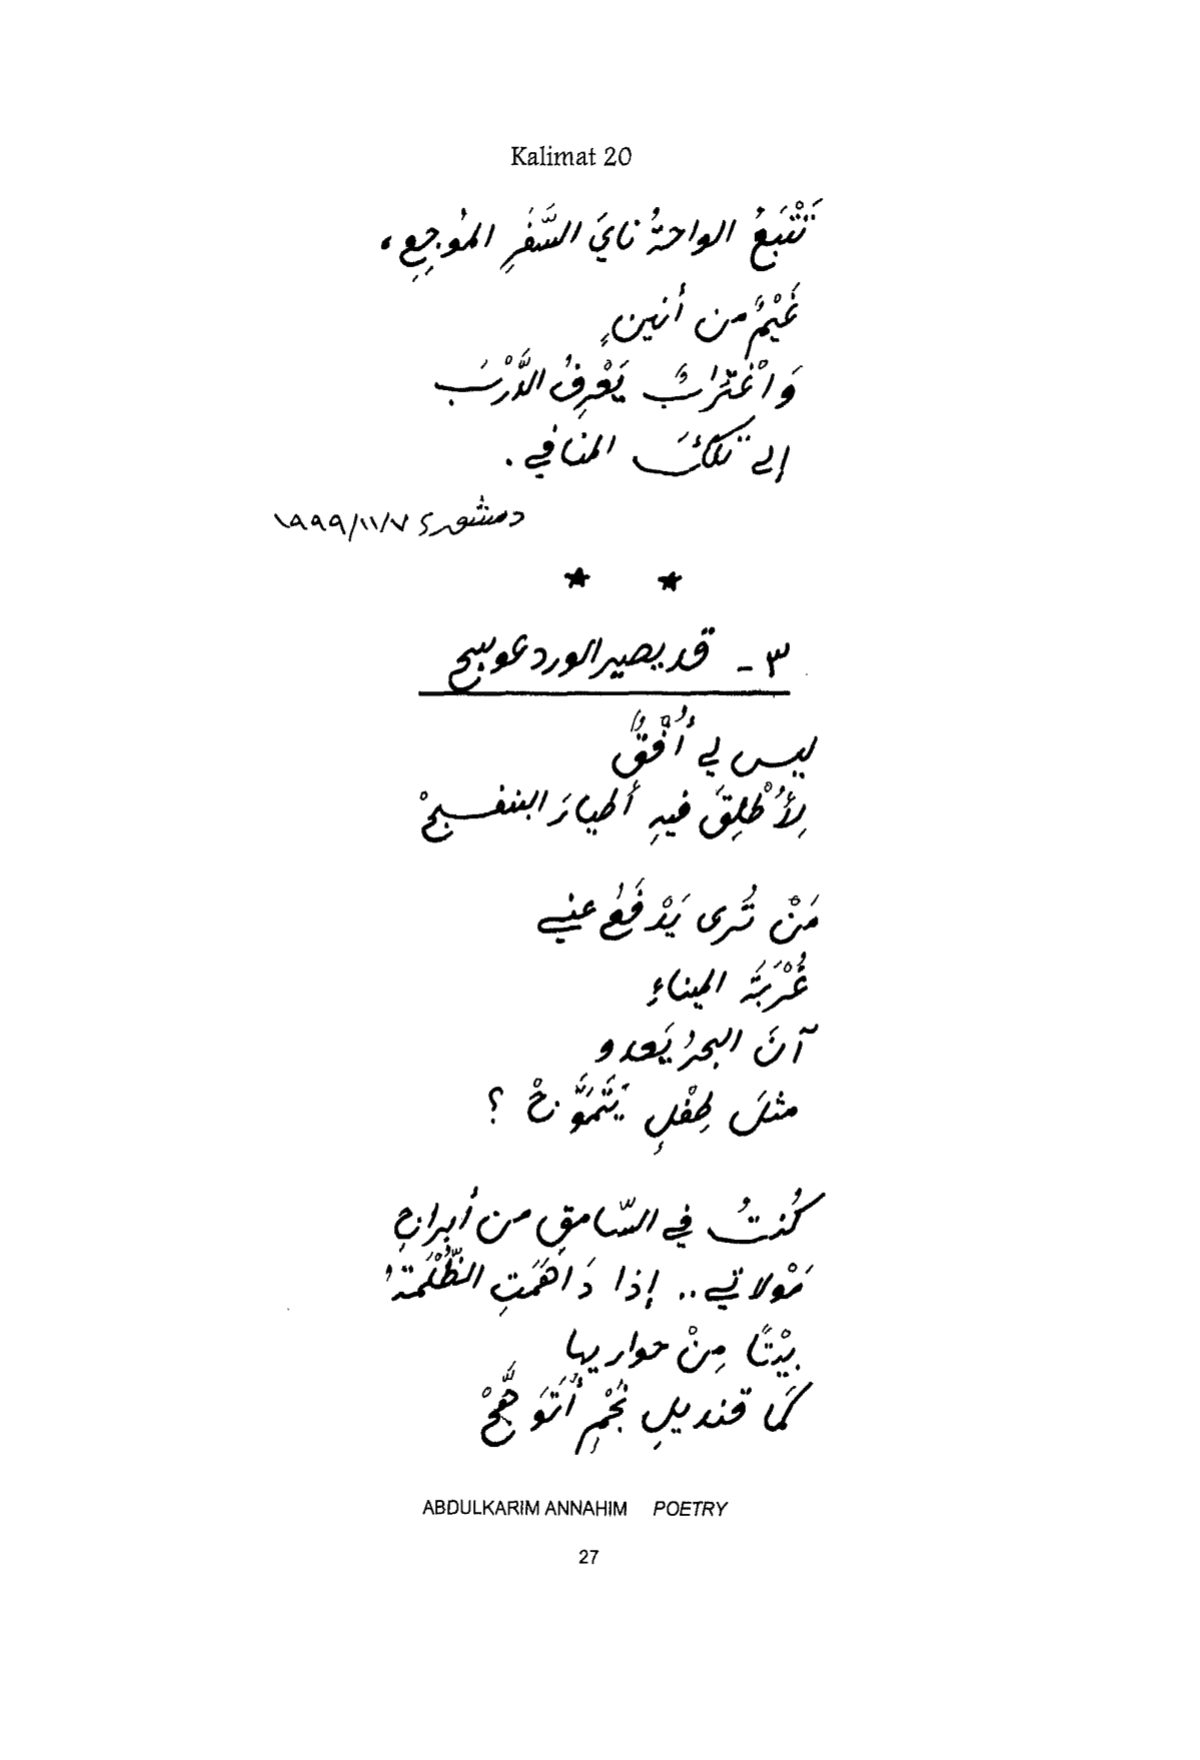 Kalimat 20
تَتْبَعُ الواحةُ نايَ السَّفَرِ المُوجِعِ،
غَيْمٌ من أنينٍ
وَاغْتِرابٌ يَعْرِفُ الدَّرْبَ
إلى تلكَ المنافي .
دمشق ١٩٩٩/١١/٧
★ ★
٣ - قد يصير الورد عوسج
ليس لي أُفْقٌ
لِأُطْلِقَ فيهِ أطيارَ البنفسجْ
مَنْ تُرى يَدْفَعُ عني
غُرْبَةَ الميناءِ
آنَ البحرُ يَعدو
مثلَ طِفْلٍ يَتَمَوَّجْ ؟
كُنتُ في السّامقِ من أبراجِ
مَوْلاتي .. إذا دَاهَمَتِ الظُّلْمَةُ
بيْتًا مِنْ حواريها
كَما قنديلِ نَجْمٍ أَتَوَهَّجْ
ABDULKARIM ANNAHIM POETRY
27